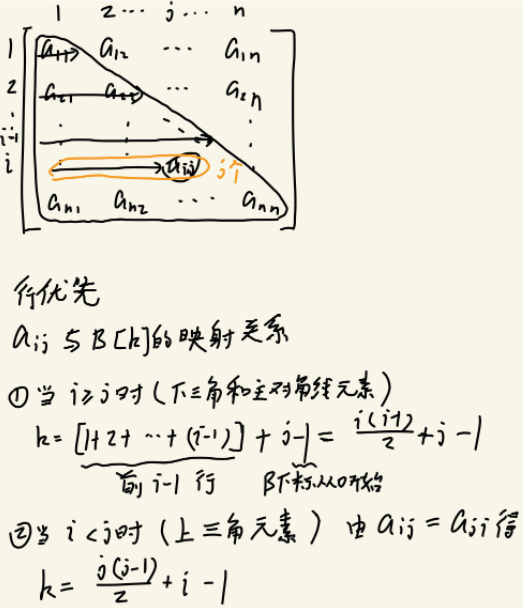 1 2 ··· j ··· n
1 a₁₁ a₁₂ ··· a₁ₙ
2 a₂₁ a₂₂ ··· a₂ₙ
⋮
i-1
i aᵢⱼ j个
aₙ₁ aₙ₂ ··· aₙₙ
行优先
aᵢⱼ 与 B[k]的映射关系
①当 i≥j时(下三角和主对角线元素)
k= [1+2+ ··· + (i-1)] + j-1 = i(i-1)/2 + j - 1
前 i-1 行 B下标从0开始
②当 i<j时(上三角元素) 由 aᵢⱼ = aⱼᵢ 得
k= j(j-1)/2 + i - 1